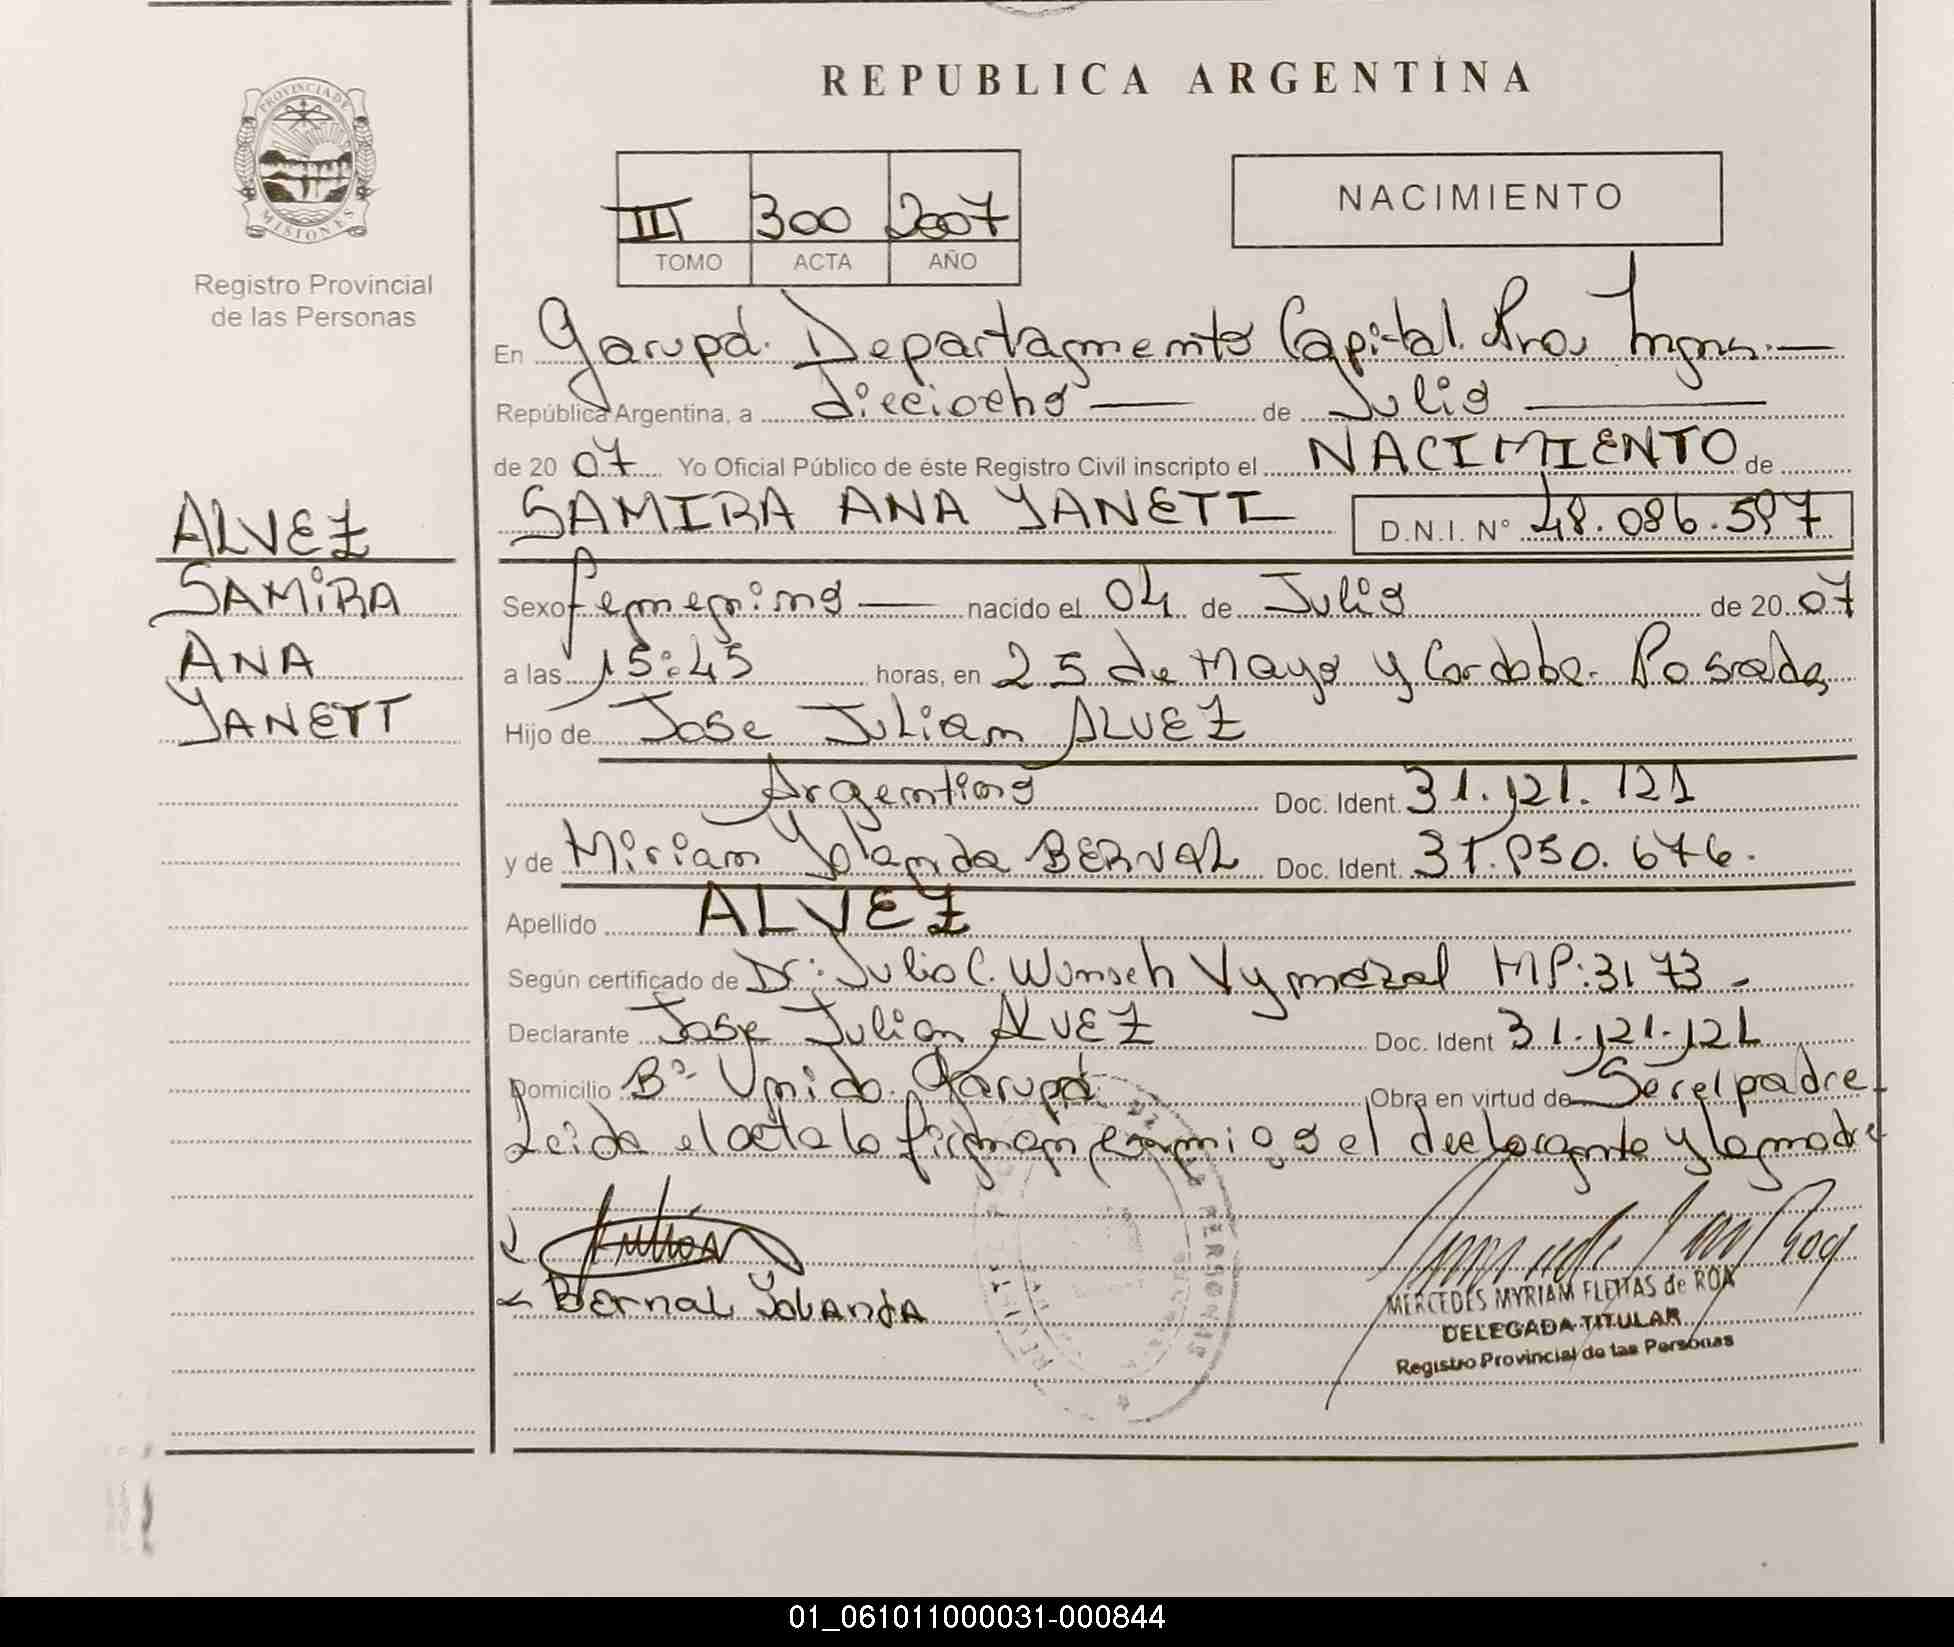 REPUBLICA ARGENTINA
PROVINCIA DE
MISIONES
Registro Provincial
de las Personas
III 300 2007
TOMO ACTA AÑO
NACIMIENTO
En Garupá. Departamento Capital.
República Argentina, a dieciocho de Julio
de 20 07 Yo Oficial Público de éste Registro Civil inscripto el NACIMIENTO de
ALVEZ
SAMIRA ANA YANETT D.N.I. Nº 48.086.597
SAMiRA
Sexo femenino nacido el 04 de Julio de 20 07
ANA
a las 15:45 horas, en 25 de Mayo y Cordoba. Posadas
YANETT
Hijo de Jose Julian ALVEZ
Argentino Doc. Ident. 31.121.121
y de Miriam Yolanda BERNAL Doc. Ident.
Apellido ALVEZ
Según certificado de Dr: Julio C. Wunsch Vymazal MP: 3173
Declarante Jose Julian ALVEZ Doc. Ident 31.121.121
Domicilio Bº Unido. Garupá Obra en virtud de Ser el padre
Leida el acta la firman conmigo el declarante y la madre
Julián
Bernal Yolanda
MERCEDES MYRIAM FLEITAS de ROA
DELEGADA TITULAR
Registro Provincial de las Personas
01_061011000031-000844